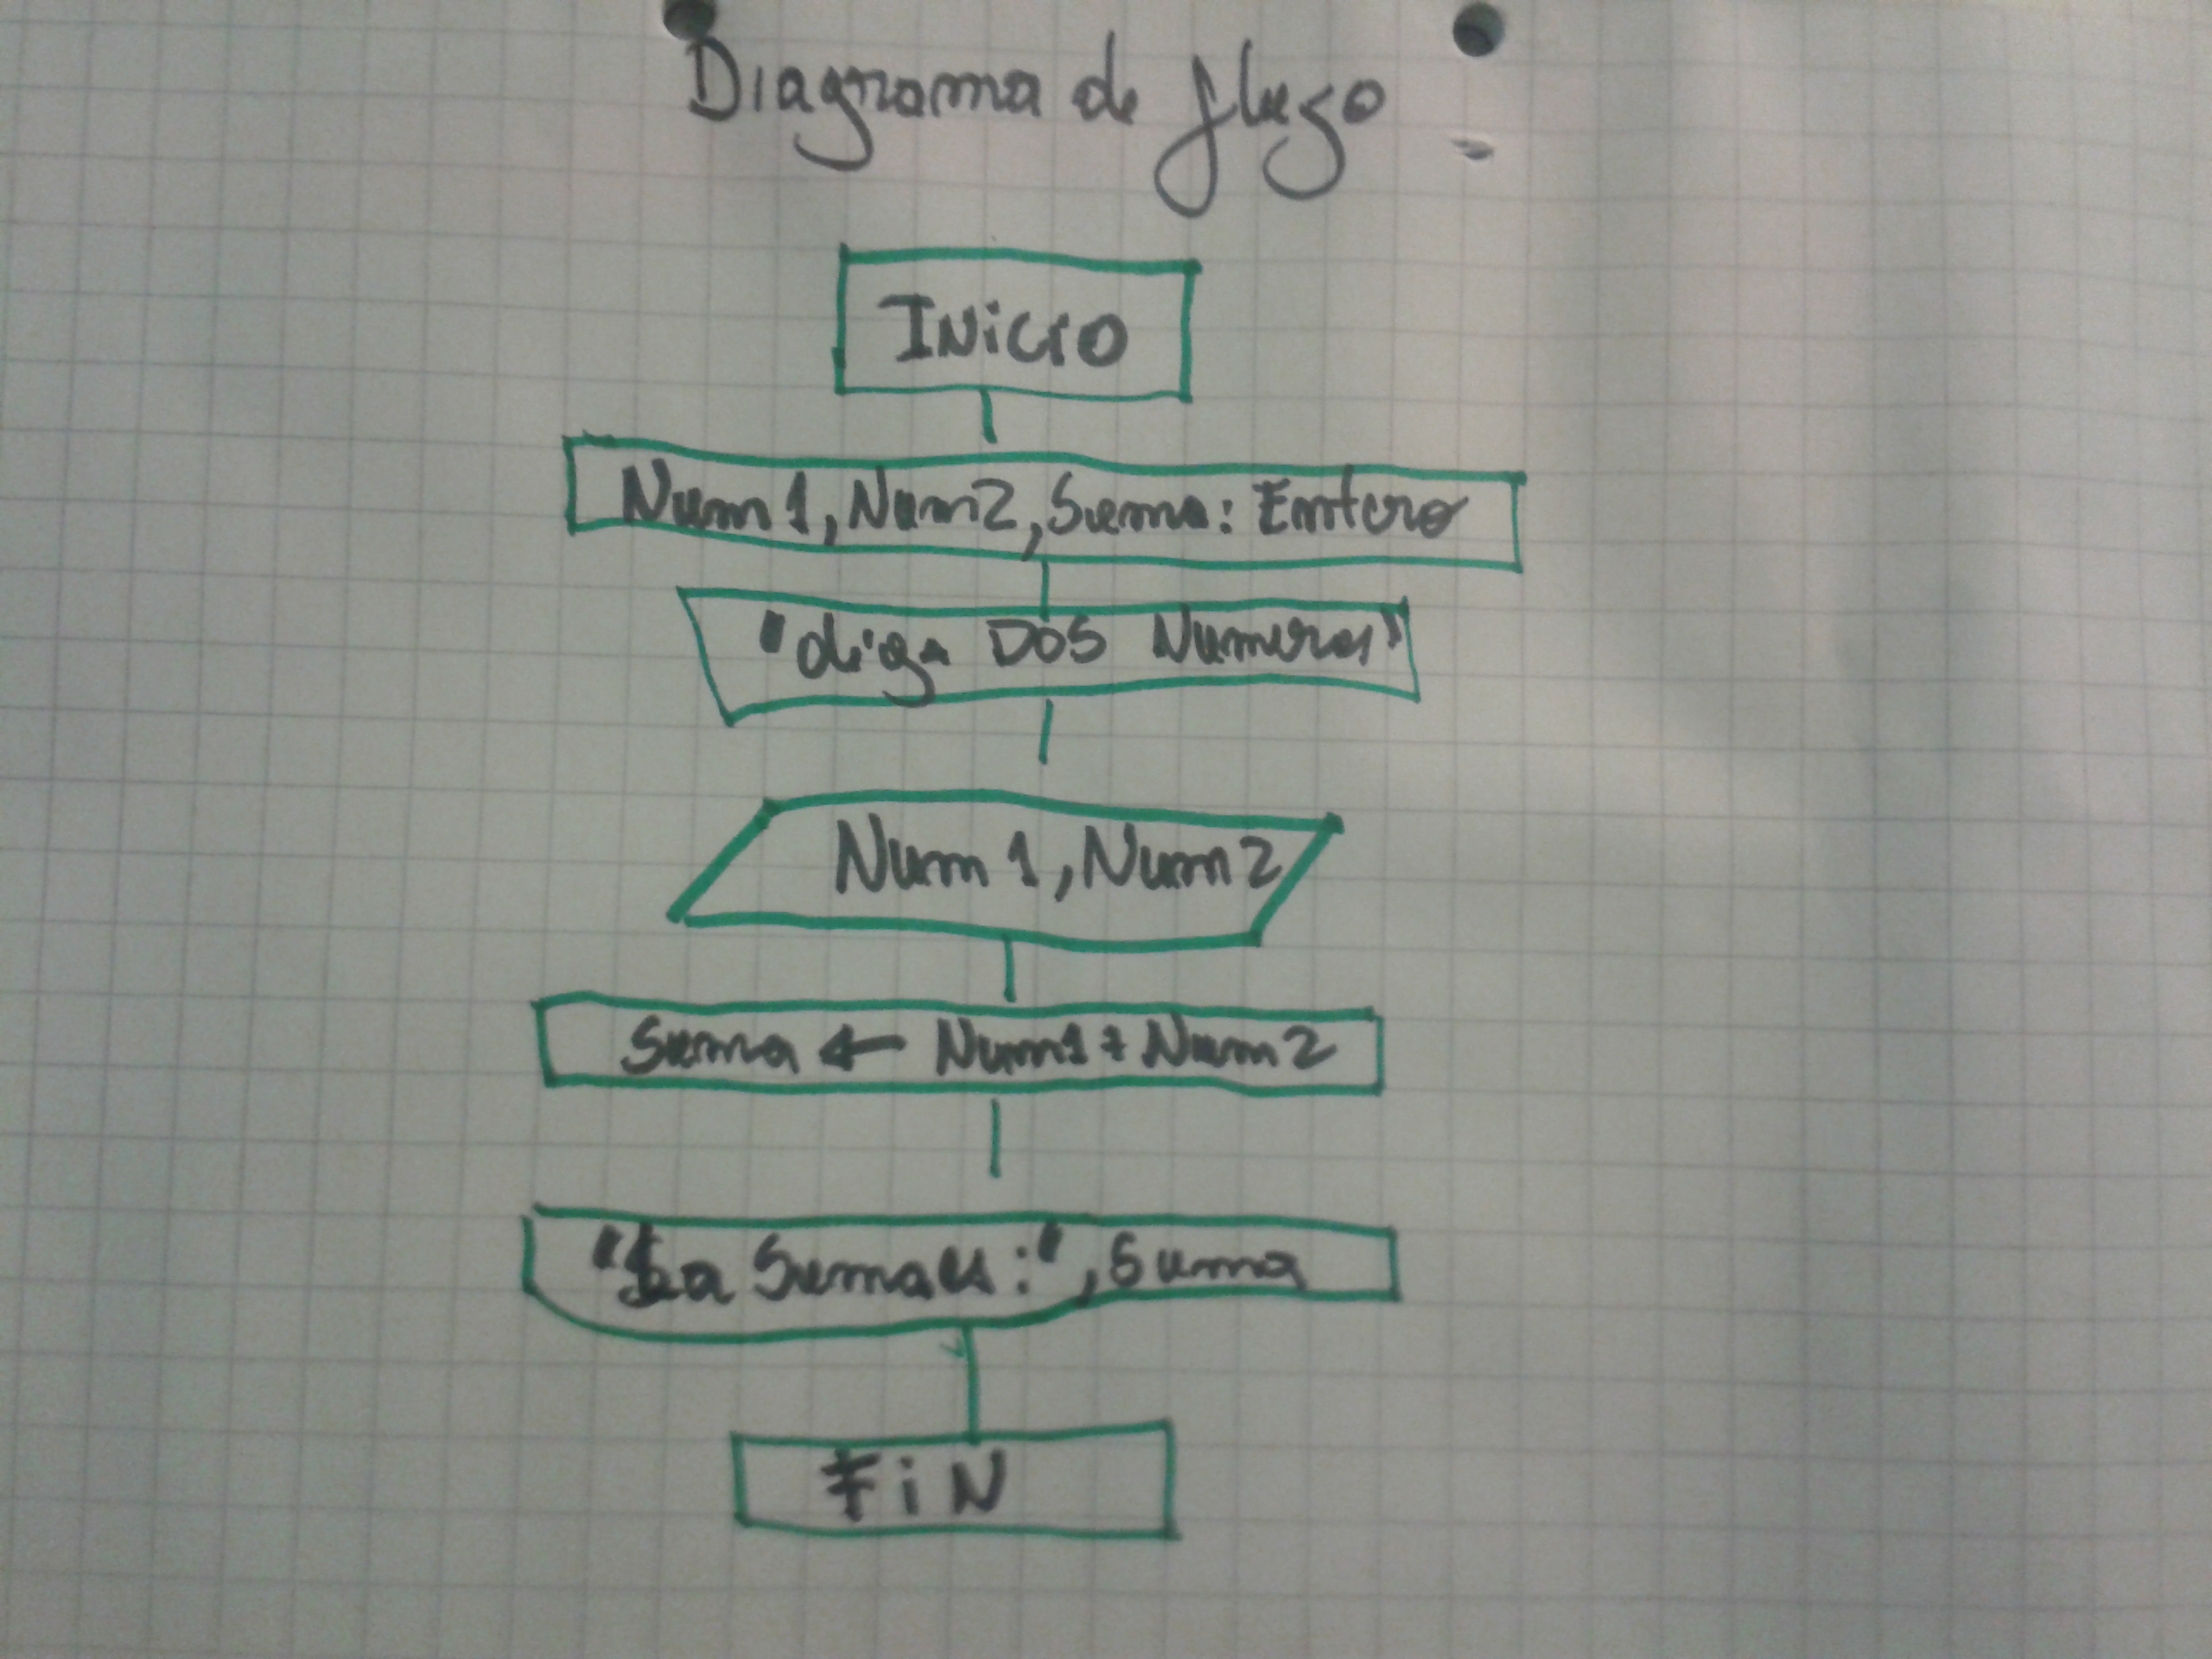 Diagrama de flujo
INiCIO
Num1, Num2, Suma: Entero
"diga DOS Numeros"
Num 1, Num2
Suma ← Num1 + Num2
"La Suma es:", Suma
FiN